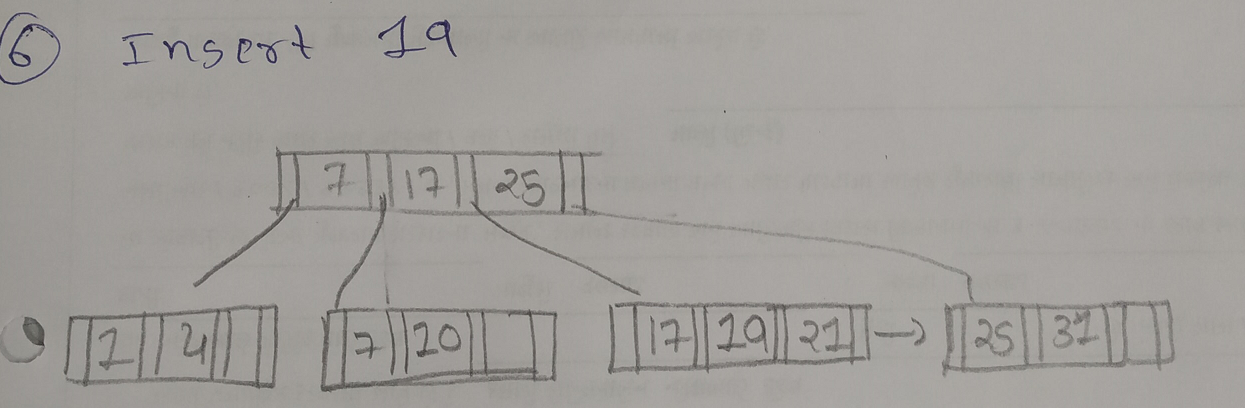 6 Insert 19
7 17 25
1 4 7 10 17 19 21 → 25 31